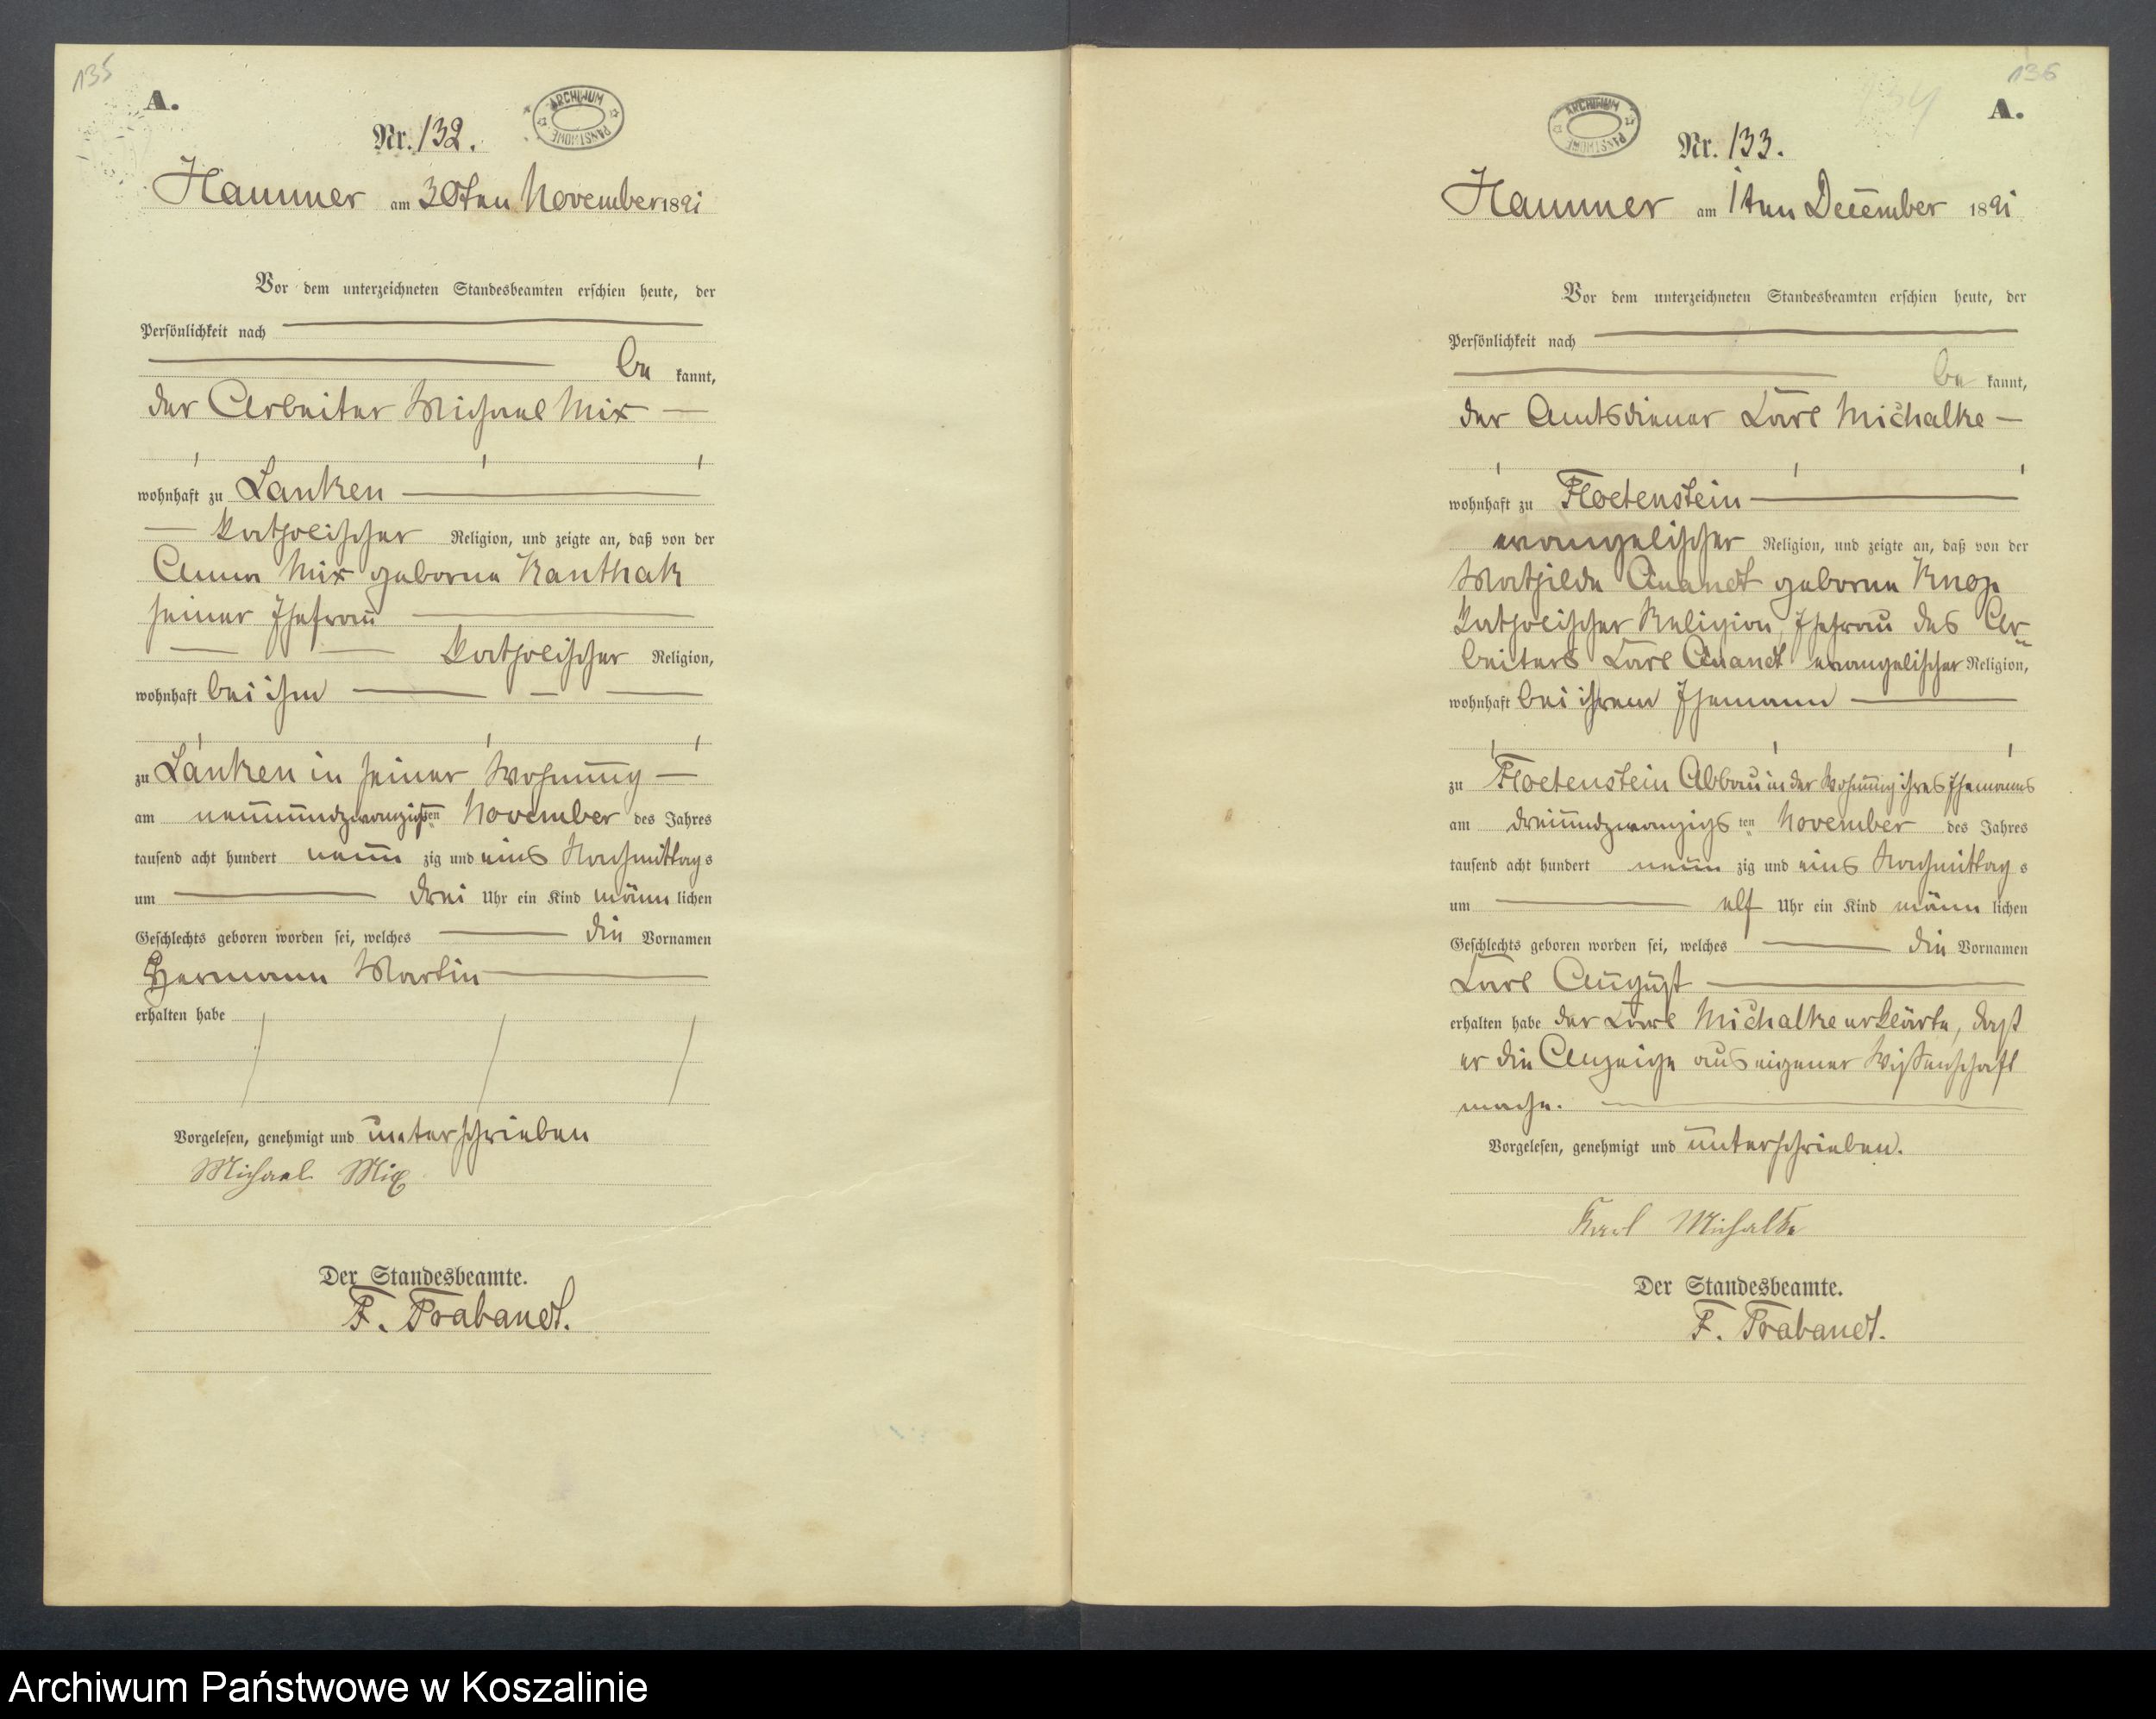 135
A.
ARCHIWUM PAŃSTWOWE
Nr. 132.
Hammer am 30ten November 1891
Vor dem unterzeichneten Standesbeamten erschien heute, der
Persönlichkeit nach
be kannt,
der Arbeiter Michael Mix
wohnhaft zu Lanken
katholischer Religion, und zeigte an, daß von der
Anna Mix geborne Kanthak
seiner Ehefrau
katholischer Religion,
wohnhaft bei ihm
zu Lanken in seiner Wohnung
am neunundzwanzigsten November des Jahres
tausend acht hundert neun zig und eins Nachmittags
um drei Uhr ein Kind männlichen
Geschlechts geboren worden sei, welches die Vornamen
Hermann Martin
erhalten habe
Vorgelesen, genehmigt und unterschrieben
Michael Mix
Der Standesbeamte.
F. Trabandt.
136
A.
ARCHIWUM PAŃSTWOWE
Nr. 133.
Hammer am 1ten December 1891
Vor dem unterzeichneten Standesbeamten erschien heute, der
Persönlichkeit nach
be kannt,
der Amtsdiener Carl Michalke
wohnhaft zu Floetenstein
evangelischer Religion, und zeigte an, daß von der
Mathilde geborne Knop
katholischer Religion, Ehefrau des Ar-
beiters Carl evangelischer Religion,
wohnhaft bei ihrem Ehemann
zu Floetenstein Abbau in der Wohnung ihres Ehemanns
am dreiundzwanzigsten November des Jahres
tausend acht hundert neun zig und eins Nachmittags
um elf Uhr ein Kind männlichen
Geschlechts geboren worden sei, welches die Vornamen
Carl August
erhalten habe der Carl Michalke erklärte, daß
er die Anzeige aus eigener Wissenschaft
mache.
Vorgelesen, genehmigt und unterschrieben.
Karl Michalke
Der Standesbeamte.
F. Trabandt.
Archiwum Państwowe w Koszalinie